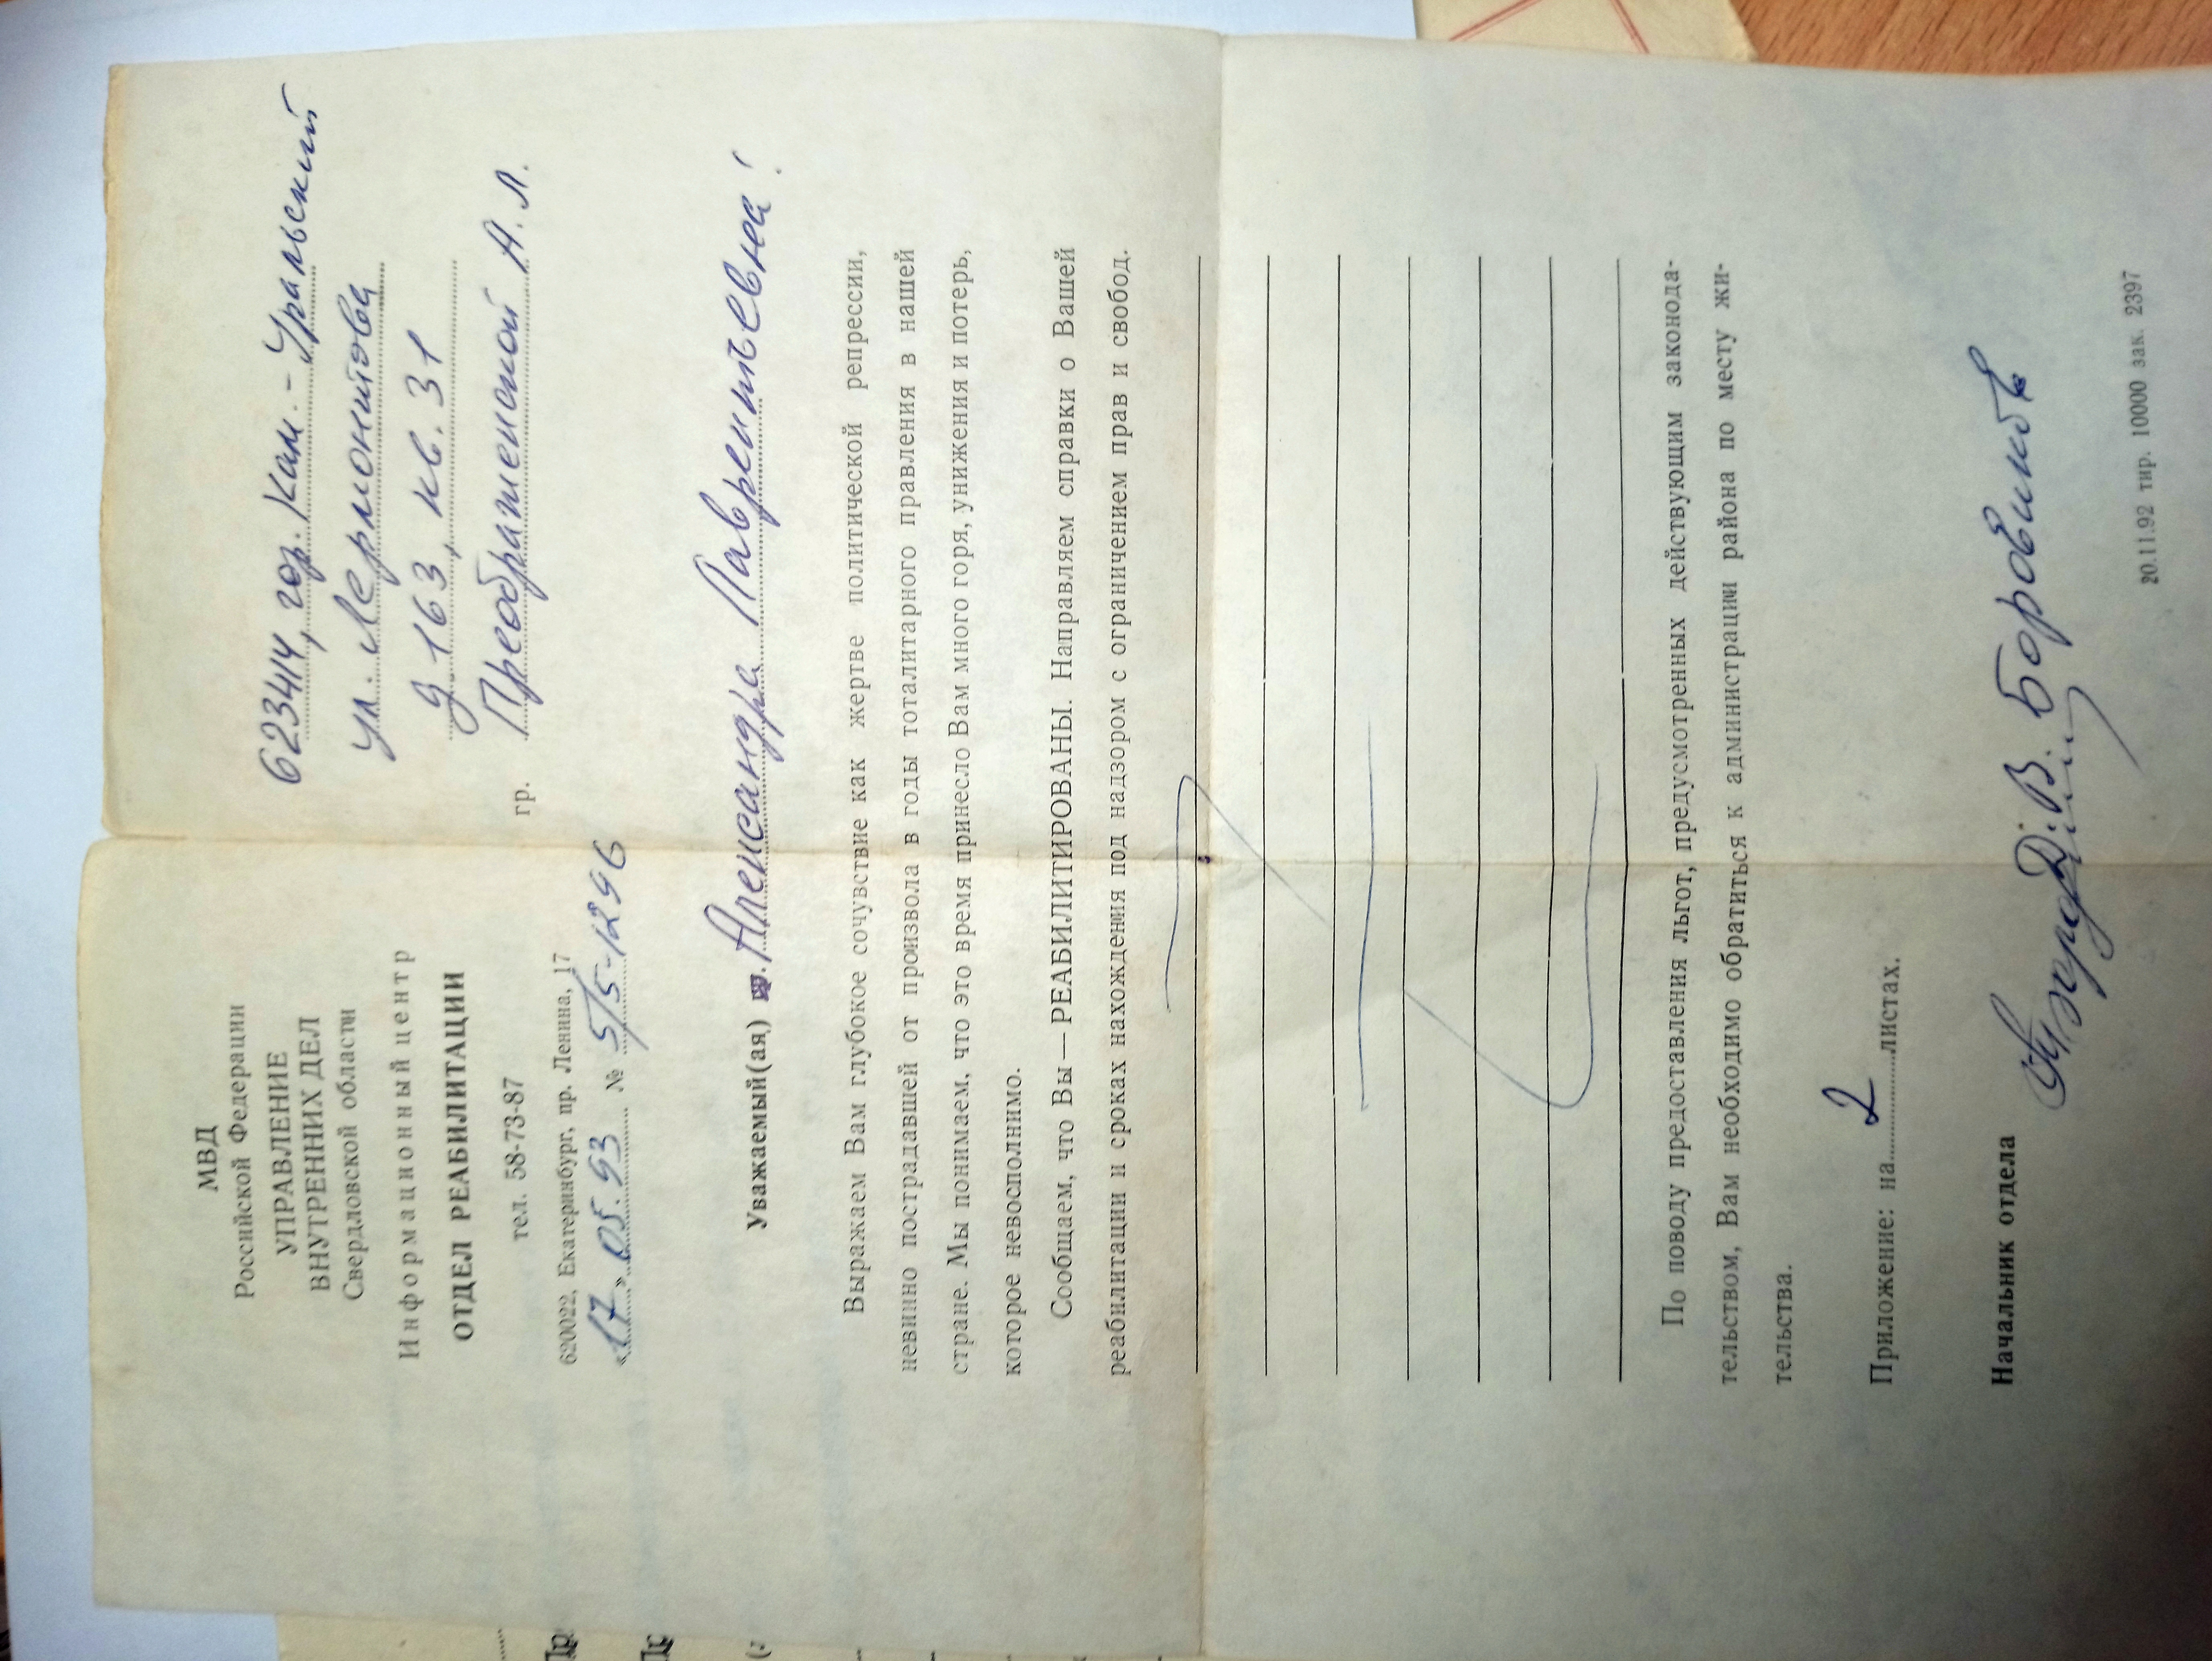 МВД
Российской Федерации
УПРАВЛЕНИЕ
ВНУТРЕННИХ ДЕЛ
Свердловской области
Информационный центр
ОТДЕЛ РЕАБИЛИТАЦИИ
тел. 58-73-87
620022, Екатеринбург, пр. Ленина, 17
«17» 05.93 № 5/5-1296
623414, гор. Кам.-Уральский
ул. Лермонтова
д 163, кв. 31
гр. Преображенской А. Л.
Уважаемый(ая) Александра Лаврентьевна!
Выражаем Вам глубокое сочувствие как жертве политической репрессии,
невинно пострадавшей от произвола в годы тоталитарного правления в нашей
стране. Мы понимаем, что это время принесло Вам много горя, унижения и потерь,
которое невосполнимо.
Сообщаем, что Вы — РЕАБИЛИТИРОВАНЫ. Направляем справки о Вашей
реабилитации и сроках нахождения под надзором с ограничением прав и свобод.
По поводу предоставления льгот, предусмотренных действующим законода-
тельством, Вам необходимо обратиться к администрации района по месту жи-
тельства.
Приложение: на 2 листах.
Начальник отдела Д.В. Боровиков
20.11.92 тир. 10000 зак. 2397